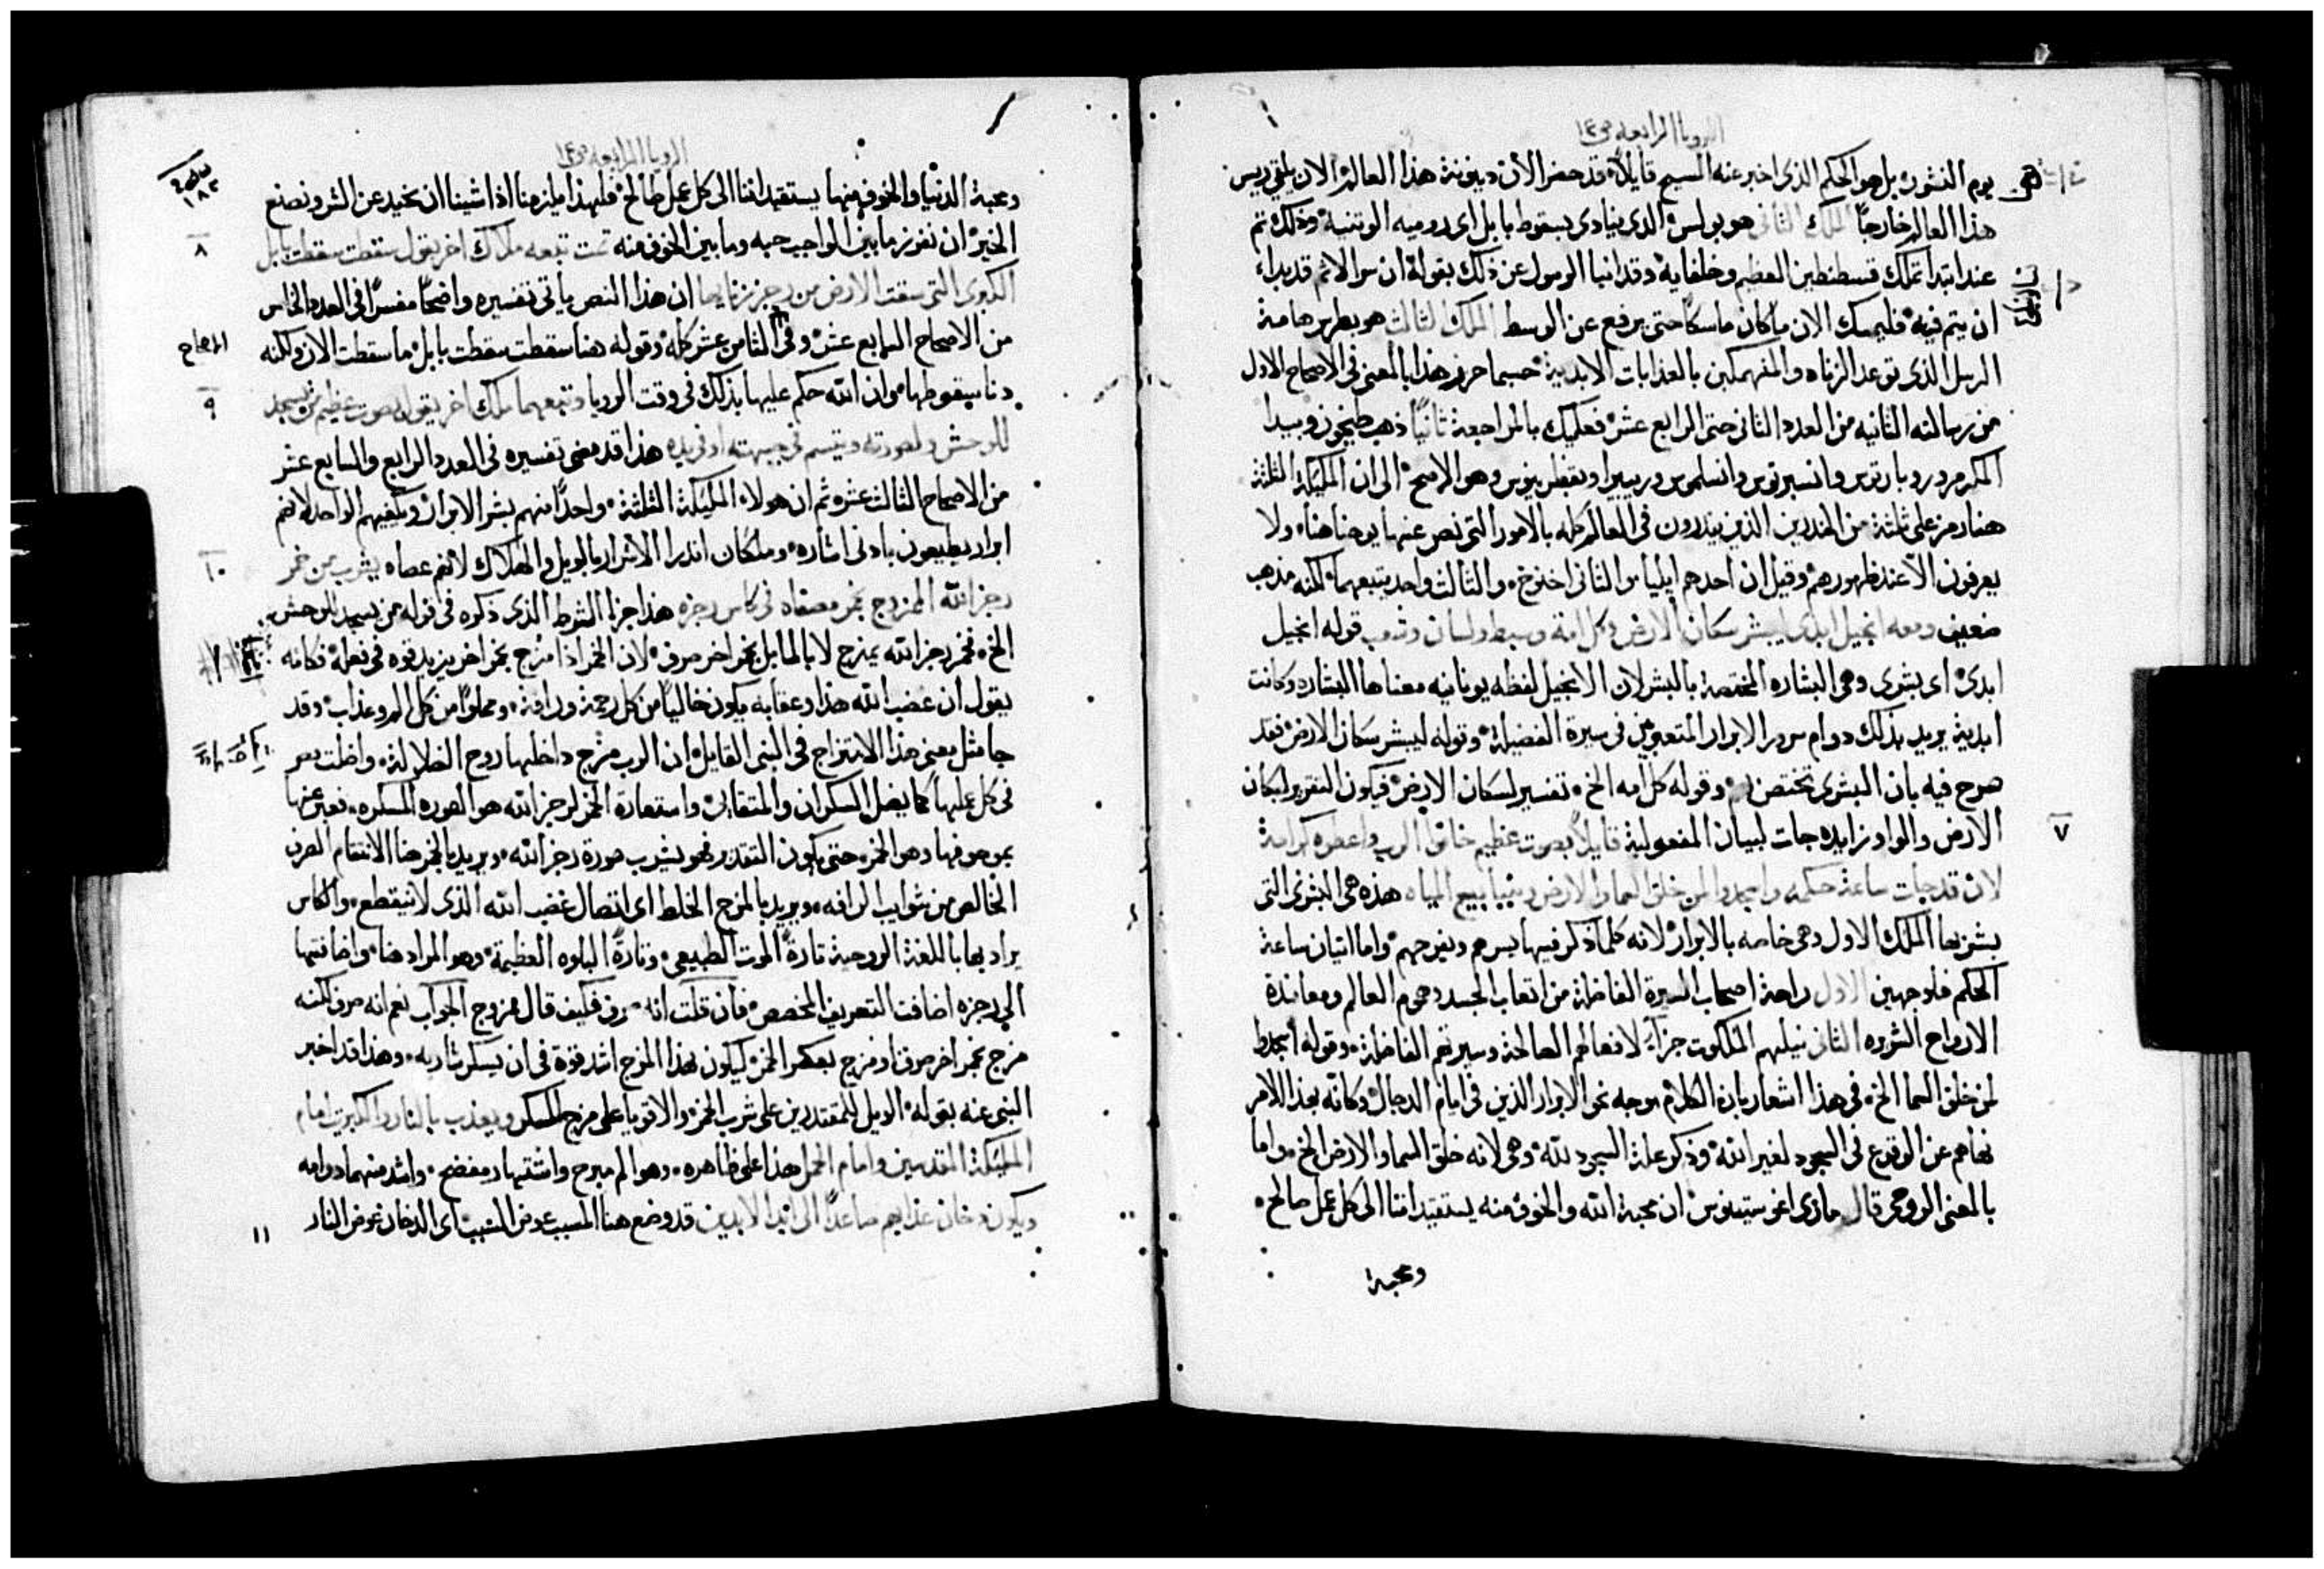 الرويا الرابعه ص١٤
يوم النشور بل هو الحكم الذى اخبر عنه المسيح قايلاً قد حضر الان دينونة هذا العالم الان يلقى ريس
هذا العالم خارجاً الملك الثانى هو بولس الذى ينادى بسقوط بابل اى روميه الوتنية وذلك تم
عند ابتدا تملك قسطنطين العظيم وخلفايه وقد انبا الرسول عن ذلك بقوله ان سر الاثم قد بداء
ان يتم فيه فليمسك الان ماكان ماسكاً حتى يرفع عن الوسط الملك الثالث هو بطرس هامة
الرسل الذى توعد الزناه والمنهمكين بالعذابات الابدية حسبما حرر هذا بالمعنى فى الاصحاح الاول
من رسالته الثانيه من العدد الثانى حتى الرابع عشر فعليك بالمراجعة ثانياً ذهب طيخون وبيدا
المكرم وروبارتوس وانسبرتوس وانسلموس وريبيرا وهو الارجح الى ان المليكة الثلثة
هنا رمز على ثلثة من المنذرين الذين ينذرون فى العالم كله بالامور التى نص عنها يوحنا هنا ولا
يعرفون الا عند ظهورهم وقيل ان احدهم ايليا والثانى اخنوخ والثالث واحد يتبعهما لكنه مذهب
ضعيف ومعه انجيل ابدى ليبشر سكان الارض وكل امة وسبط ولسان وشعب قوله انجيل
ابدى اى بشرى وهى البشاره المختصة بالبشر لان الانجيل لفظه يونانيه معناها البشاره وكانت
ابدية يريد بذلك دوام سرور الابرار المتعبين فى سيرة الفضيلة وقوله ليبشر سكان الارض فقد
صرح فيه بان البشرى تختص وقوله كل امه الخ تفسير لسكان الارض فيكون التقرير لسكان
٧
الارض والواو زايده جات لبيان المفعولية قايلاً بصوت عظيم خافوا الرب واعطوه كرامة
لان قد جات ساعة حكمه واسجدوا لمن خلق السما والارض وينابيع المياه هذه هى البشرى التى
بشر بها الملك الاول وهى خاصه بالابرار لانه كلما ذكر فيها يسرهم ويفرحهم واما اتيان ساعة
الحكم فلوجهين الاول راحة اصحاب السيرة الفاضلة من اتعاب الجسد وهموم العالم ومعاندة
الارواح الشريره الثانى نيلهم الملكوت جزآء لافعالهم الصالحة وسيرتهم الفاضلة وقوله اسجدوا
لمن خلق السما الخ فى هذا اشعار بان الكلام موجه نحو الابرار الذين فى ايام الدجال وكانه بهذا الامر
نهاهم عن الوقوع فى السجود لغير الله وذكر علة السجود لله وهى لانه خلق السما والارض الخ واما
بالمعنى الروحى قال مارى اغوستينوس ان محبة الله والخوف منه يستقيداننا الى كل عمل صالح
ومحبة
الرويا الرابعه ص١٤
ومحبة الدنيا والخوف منها يستقيداننا الى كل عمل طالح فلهذا يلزمنا اذا شينا ان نحيد عن الشر ونصنع
٨
الخير ان نفرز مابين الواجب حبه ومابين الخوف منه تمت تبعه ملاك اخر يقول سقطت سقطت بابل
الكبرى التى سقت الارض من رجز زنايها ان هذا النص ياتى تفسيره واضحاً مفسراً فى العدد الخامس
من الاصحاح السابع عشر وفى الثامن عشر كله وقوله هنا سقطت سقطت بابل ما سقطت الان ولكنه
٩
دنا سقوطها وان الله حكم عليها بذلك فى وقت الرويا وتبعهما ملك اخر يقول بصوت عظيم من يسجد
للوحش ولصورته ويتسم فى جبهته او فى يده هذا قد مضى تفسيره فى العدد الرابع والسابع عشر
من الاصحاح الثالث عشر ثم ان هولاء المليكة الثلثة واحداً منهم بشر الابرار ويكفيهم الواحد لانهم
١٠
ابرار يطيعون بادنى اشاره وملكان انذرا الاشرار بالويل والهلاك لانهم عصاه يشرب من خمر
رجز الله الممزوج بخمر مصفاه فى كاس رجزه هذا جزا الشرط الذى ذكره فى قوله من يسجد للوحش
الخ فخمر رجز الله يمزج لا بالما بل بخمر اخر صرف لان الخمر اذا مزج بخمر اخر يزيد قوه فى فعله فكانه
يقول ان غضب الله هذا وعقابه يكون خالياً من كل رحمة ورافة ومملواً من كل الم وعذاب وقد
جا مثل معنى هذا الامتزاج فى النبى القايل ان الرب مزج داخلها روح الضلالة واضلت مصر
فى كل عملها كما يضل السكران والمتقايى واستعارة الخمر لرجز الله هو لصوره المسكره فعبر عنها
بموصوفها وهو الخمر حتى يكون التقدير فهو يشرب صورة رجز الله ويريد بالخمر هنا الانتقام الصرف
الخالص من شوايب الرافه ويريد بالمزج الخلط اى اتصال غضب الله الذى لا ينقطع والكاس
يراد بها باللغة الروحية تارةً الموت الطبيعى وتارةً البلوه العظيمة وهو المراد هنا واضافتها
الى رجزه اضافت التعريف المخصص فان قلت انه صرف فكيف قال ممزوج الجواب نعم انه صرف لكنه
مزج بخمر اخر صرف او مزج بعكر الخمر ليكون بهذا المزج اشد قوة فى ان يسكر شاربه وهذا قد اخبر
النبى عنه بقوله الويل للمقتدرين على شرب الخمر والاقويا على مزج المسكر ويعذب بالنار والكبريت امام
المليكة القديسين وامام الحمل هذا على ظاهره وهو الم مبرح واشتهار مفضح واشد منهما دوامه
١١
ويكون دخان عذابهم صاعداً الى ابد الابدين قد وضع هنا المسبب عوض السبب اى الدخان عوض النار